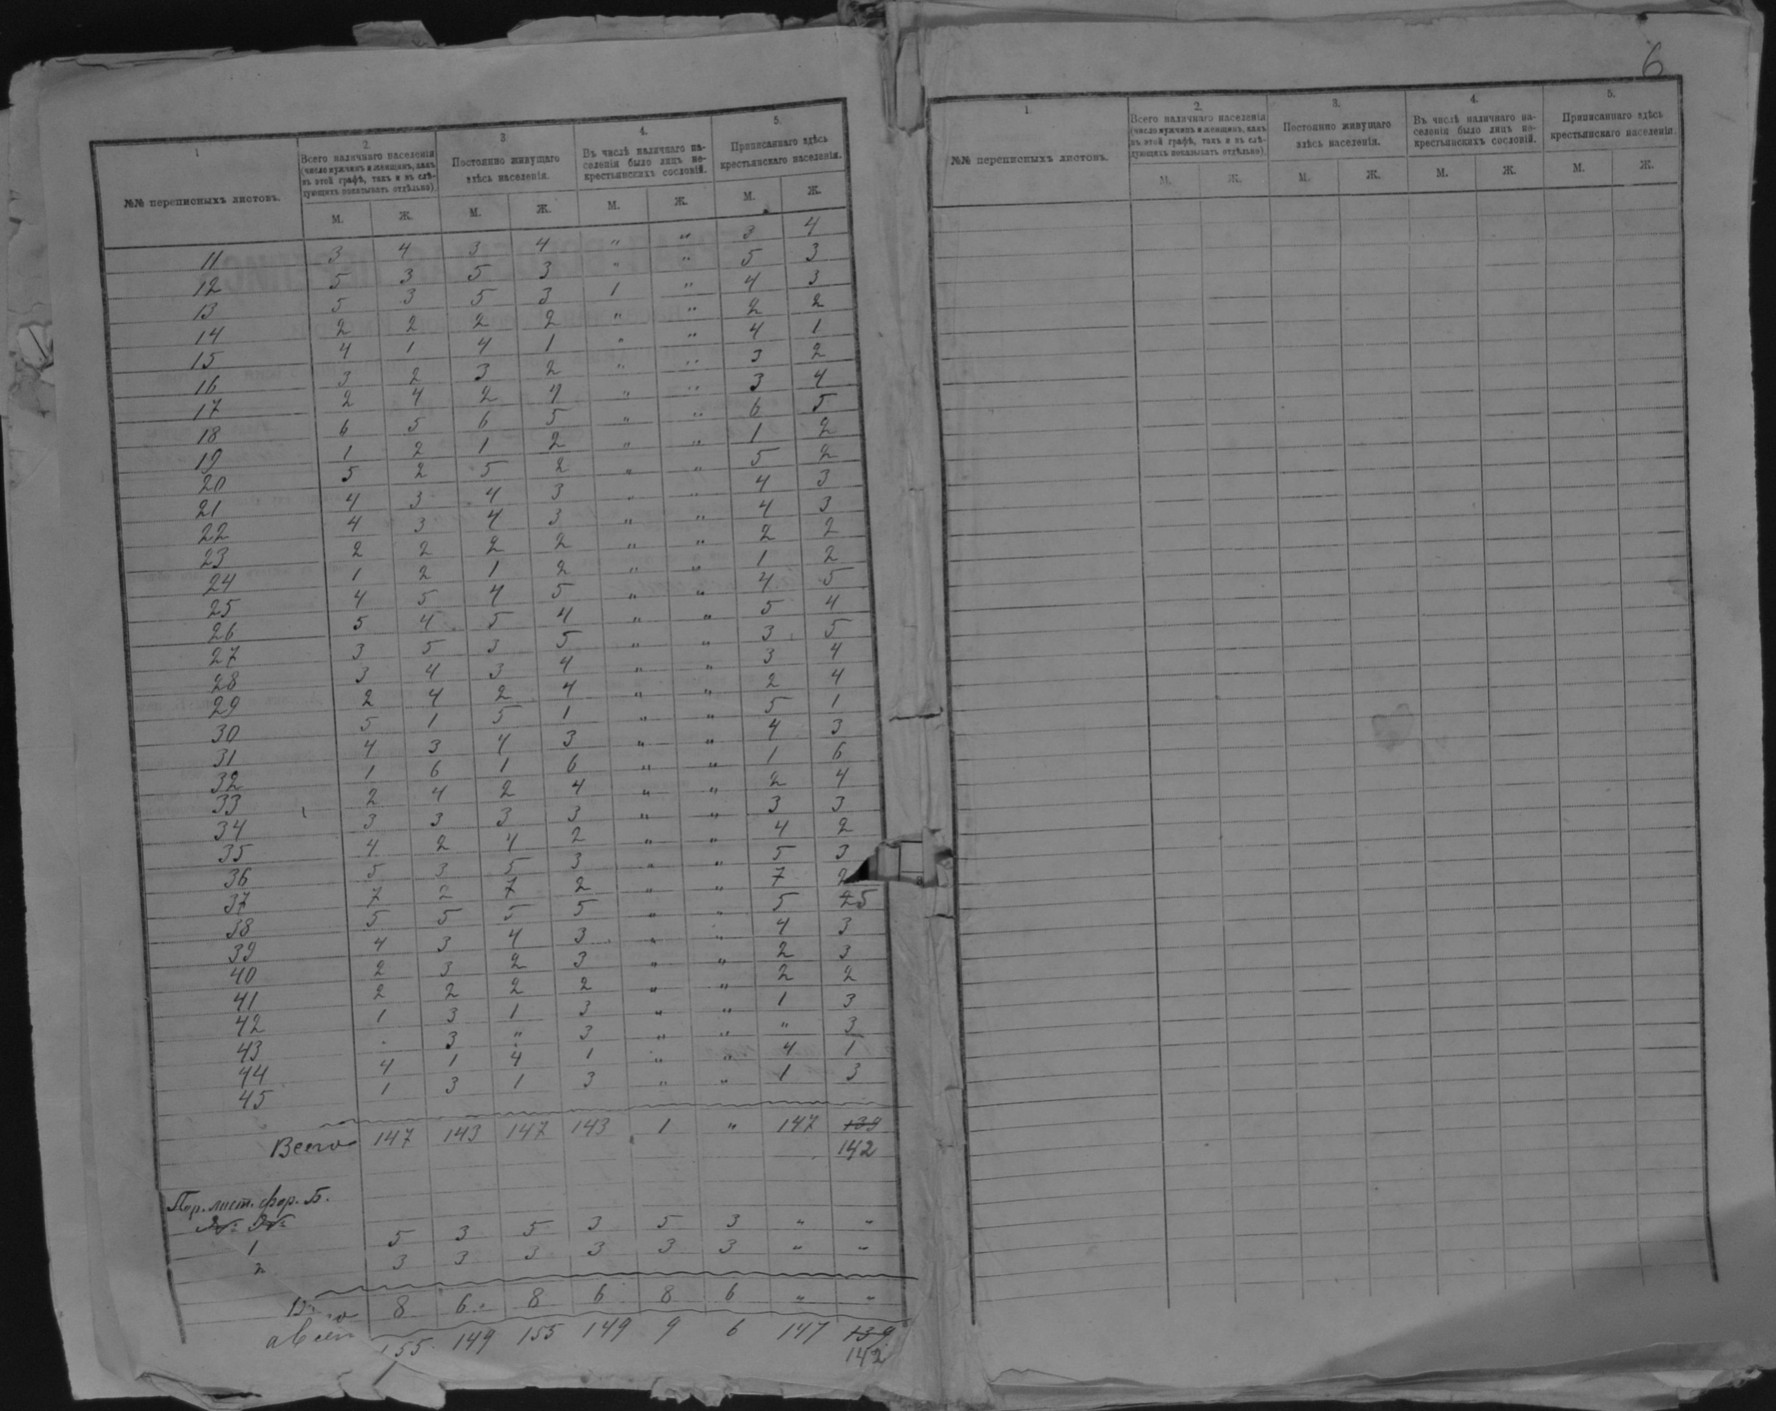 6
1
2.
3
4.
5.
№№ переписныхъ листовъ.
Всего наличнаго населенія (число мужчинъ и женщинъ, какъ въ этой графѣ, такъ и въ слѣдующихъ показывать отдѣльно).
Постоянно живущаго здѣсь населенія.
Въ числѣ наличнаго населенія было лицъ некрестьянскихъ сословій.
Приписаннаго здѣсь крестьянскаго населенія.
М. Ж. М. Ж. М. Ж. М. Ж.
11 3 4 3 4 " " 3 4
12 5 3 5 3 " " 5 3
13 5 3 5 3 1 " 4 3
14 2 2 2 2 " " 2 2
15 4 1 4 1 " " 4 1
16 3 2 3 2 " " 3 2
17 2 4 2 4 " " 3 4
18 6 5 6 5 " " 6 5
19 1 2 1 2 " " 1 2
20 5 2 5 2 " " 5 2
21 4 3 4 3 " " 4 3
22 4 3 4 3 " " 4 3
23 2 2 2 2 " " 2 2
24 1 2 1 2 " " 1 2
25 4 5 4 5 " " 4 5
26 5 4 5 4 " " 5 4
27 3 5 3 5 " " 3 5
28 3 4 3 4 " " 3 4
29 2 4 2 4 " " 2 4
30 5 1 5 1 " " 5 1
31 4 3 4 3 " " 4 3
32 1 6 1 6 " " 1 6
33 2 4 2 4 " " 2 4
34 3 3 3 3 " " 3 3
35 4 2 4 2 " " 4 2
36 5 3 5 3 " " 5 3
37 7 2 7 2 " " 7 2
38 5 5 5 5 " " 5 25
39 4 3 4 3 " " 4 3
40 2 3 2 3 " " 2 3
41 2 2 2 2 " " 2 2
42 1 3 1 3 " " 1 3
43 " 3 " 3 " " " 3
44 4 1 4 1 " " 4 1
45 1 3 1 3 " " 1 3
Всего 147 143 147 143 1 " 147 139
142
Пер. лист. фор. Б.
№ №
1 5 3 5 3 5 3 " "
2 3 3 3 3 3 3 " "
8 6 8 6 8 6 " "
155 149 155 149 9 6 147 139
142
1.
2.
3.
4.
5.
№№ переписныхъ листовъ.
Всего наличнаго населенія (число мужчинъ и женщинъ, какъ въ этой графѣ, такъ и въ слѣдующихъ показывать отдѣльно).
Постоянно живущаго здѣсь населенія.
Въ числѣ наличнаго населенія было лицъ некрестьянскихъ сословій.
Приписаннаго здѣсь крестьянскаго населенія.
М. Ж. М. Ж. М. Ж. М. Ж.